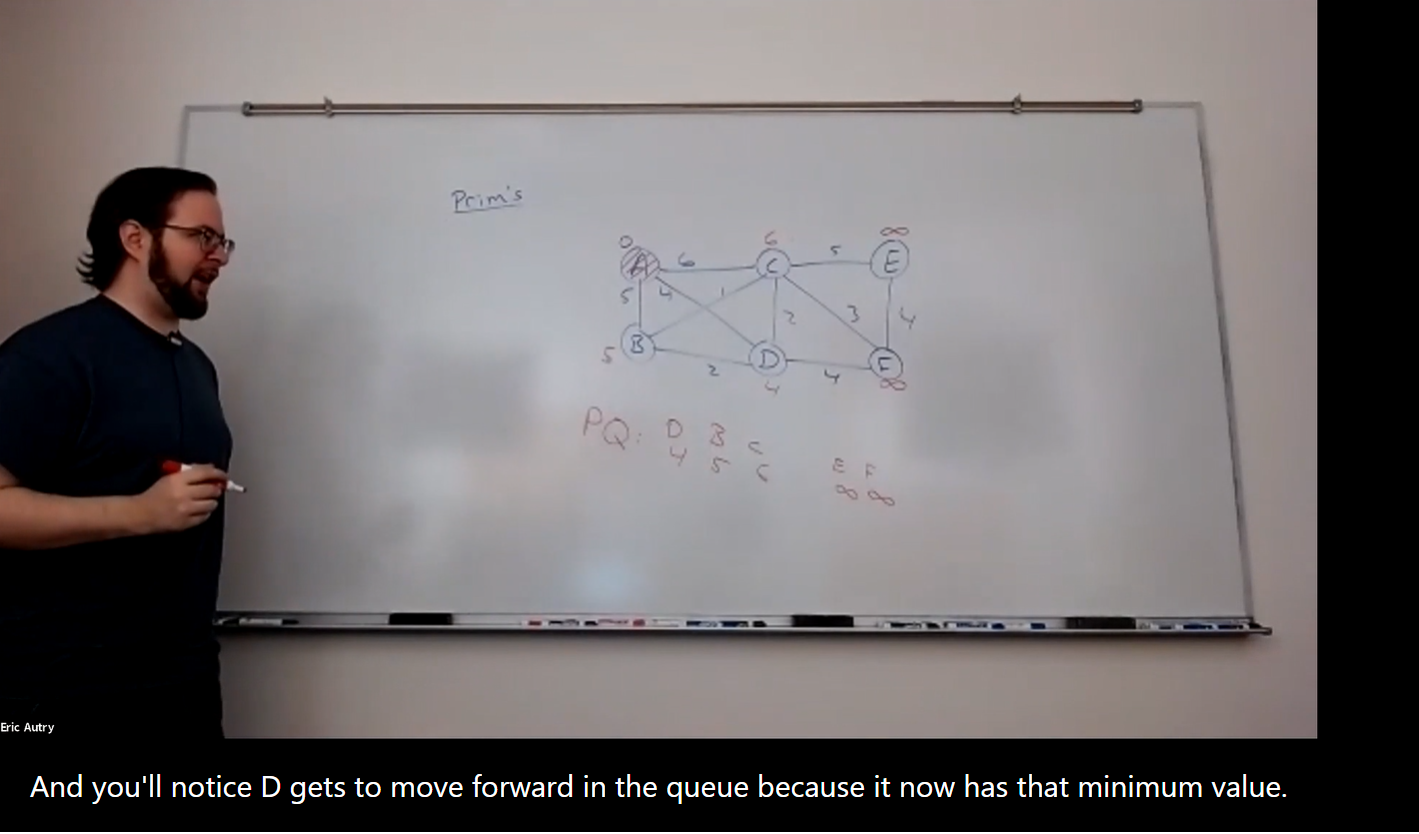 Prim's
0 6 ∞
A 6 C 5 E
5 4 1 2 3 4
B D F
5 2 4 4 ∞
PQ: D B C E F
4 5 6 ∞ ∞
Eric Autry
And you'll notice D gets to move forward in the queue because it now has that minimum value.